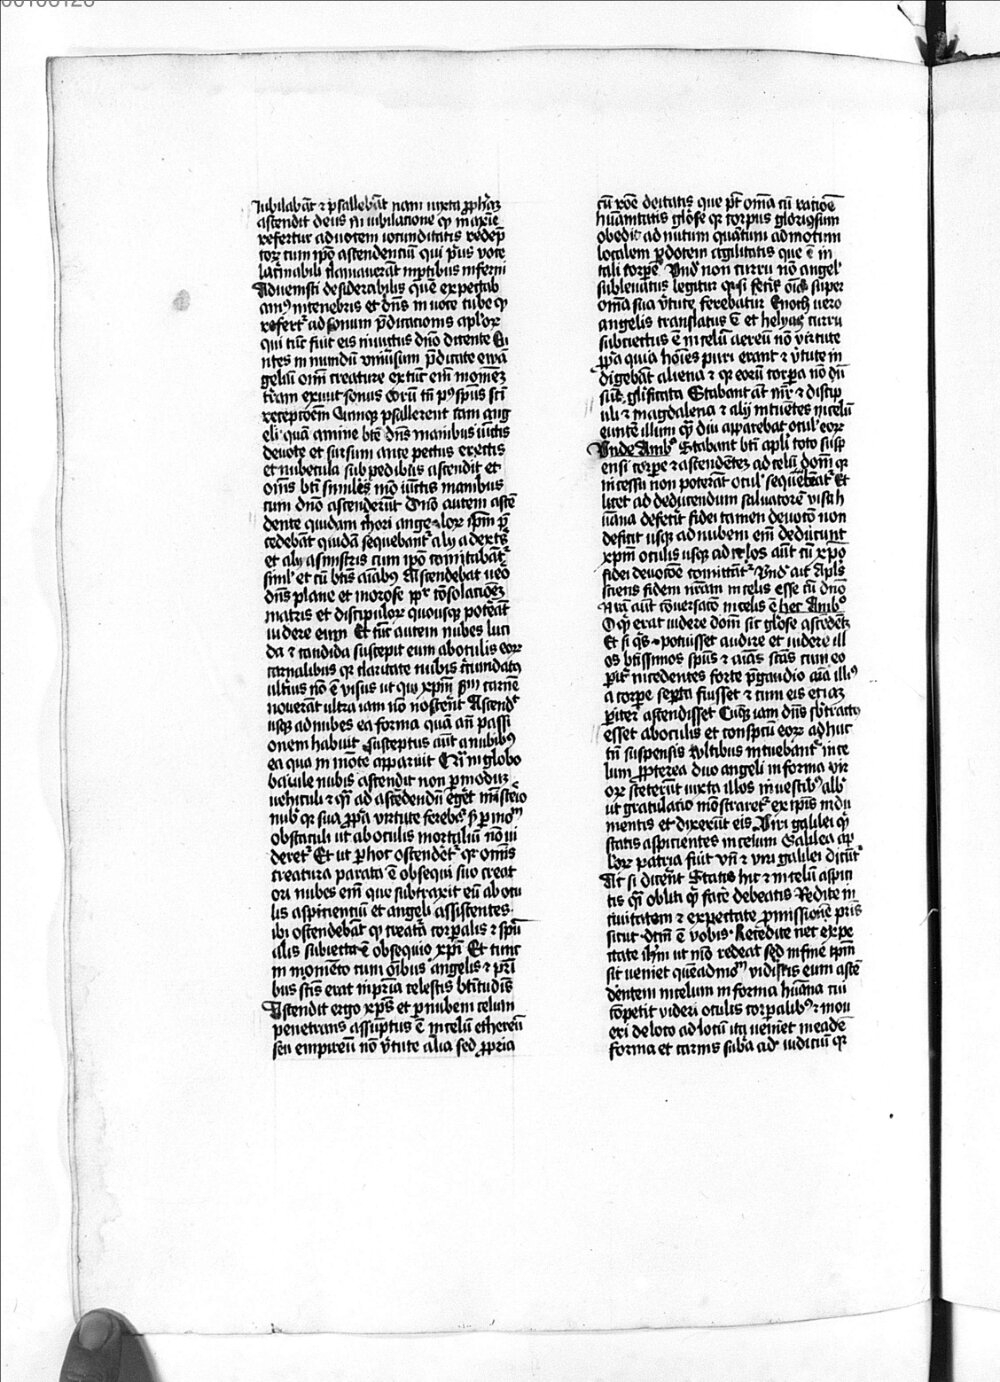 iubilabāt et psallebāt nam iuxta ꝓphīaz
ascendit deus in iubilatione qꝫ maxīe
refertur ad uotem iocunditatis redēp
toꝝ cum ipō ascendentiū qui p̄us voce
lac̄mabili clamauerāt inptibus inferni
Aduenisti desiderabilis quē expectab
amꝰ in tenebris et dn̄s in uoce tube qꝫ
refertᷣ ad sonum p̄dicationis aplōꝝ
qui tūc fuit eis iniūctus dn̄o dicente Eū
ntes in mundū vniūsum p̄dicate ewā
geliū om̄i creature ex tūc em̄ in om̄ez
trām exiuit sonus eoꝝ tn̄ pꝰ spūs scī
receptōem Cumqꝫ psallerent tam ang
eli quā anime btē dn̄s manibus iūctis
deuote et sursum ante pectus erectis
et nubecula sub pedibus ascendit et
om̄s bt̄i similes mō iūctis manibus
cum dn̄o ascenderūt Dn̄o autem ascē
dente quidam chori angeloꝝ ip̄m p̄
cedebāt quidā sequebantᷣ alij a dextᷣs
et alij a sinistris cum ipō comitabātᷣ
simlᷣ et cū bt̄is aīabꝰ Ascendebat ūo
dn̄s plane et morose ꝓpᷣ cōsolationez
matris et discipuloꝝ quousqꝫ poterāt
uidere eum Et tūc autem nubes luci
da et candida suscepit eum ab oculis eoꝝ
carnalibus qꝛ claritate nubis circundatꝰ
ulterius nō ē visus ut qui xp̄m sᷤm carnē
nouerāt ultra iam nō noscerēt Ascendᷣ
usqꝫ ad nubes ea forma quā an̄ passi
onem habuit susceptus aūt a nubibꝰ
ea qua in mōte apparuit Cᷓm in globo
baiule nubis ascendit non ꝑ modūz
uehiculi et qᷓm ad ascēdendū egēt ministᷣio
nubᷣ qꝛ sua ꝓpᷣa virtute ferebaᷣ sꝫ ꝑ modū
obstaculi ut ab oculis mortaliū nō ui
deretᷣ Et ut ꝑ hoc ostendēt qꝛ om̄is
creatura parata ē obsequi suo creat
ori nubes em̄ que subtraxit eū ab ocu
lis aspicientiū et angeli assistentes
ibi ostendebāt qꝫ creatā corꝑalis et spūa
alis subiecta ē obsequio xp̄i Et tunc
in momēto cum oībus angelis et prī
bus scīs erat in pr̄ia celestis bt̄itudīs
Ascendit ergo xp̄s et ꝑ nubem celum
penetrans assuptus ē in celū ethereū
seu empireū nō ꝟtute alia sed ꝓpria
cū rōe deitatis que p̄t oīa cū ratiōe
hūanitatis glōse qꝛ corpus gloriosum
obedit ad nutum quātum ad motum
localem ꝑ dotem agilitatis que ē in
tali corpe Vnd non curru nō angelᷣ
subleuatus legitur qꝛ si fecit oīa super
oīa sua ꝟtute ferebatur Enoch uero
angelis translatus ē et helyas curru
subuectus ē in celū aereū nō virtute
ꝓpᷣa quia hoīes puri erant et ꝟtute in
digebāt aliena et qꝛ eorū corpa nō dū
sūt glificata Stabant aūt mr̄ et discip
uli et magdalena et alij intuētes in celū
euntē illum qᷓ diu apparebat oculᷣ eoꝝ
Vnde Ambᷤ Stabant bt̄i apli toto susp
ensi corpe et ascendētez ad celū dom̄ qꝛ
incessu non poterāt oculᷣ sequebātᷣ Et
licet ad deducendum saluatorē vista h
uāna deferetᷣ fidei tamen deuotō non
deficit usqꝫ ad nubem em̄ deducunt
xp̄m oculis usqꝫ ad celos aūt cū xp̄o
fidei deuotōe comittātᷣ Vnd ait Apls
sciens fidem nr̄am in celis esse cū dn̄o
Nr̄a aūt cōuersatō in celis ē hec Ambᷤ
O qꝫ erat uidere dom̄ sic glōse ascēdētz
Et si qᷤ potuisset audire et uidere ill
os bt̄issimos spūs et aīas scās cum eo
pitᷣ incedentes forte p̄ gaudio aīa illiꝰ
a corpe sepata fuisset et cum eis etiaz
pariter ascendisset Cūqꝫ iam dn̄s sbtractꝰ
esset ab oculis et cōspectū eoꝝ adhuc
tn̄ suspensis vultibus intuebantᷣ in ce
lum ꝓpterea duo angeli in forma vir
oꝝ steterūt iuxta illos in uestibꝰ albᷣ
ut gratulatio mōstraretᷣ ex ipīs indu
mentis et dixerūt eis Viri galilei qᷓ
statis aspicientes in celum Galilea ap
loꝝ patria fuit vn̄ et viri galilei dicūtᷣ
Ac si dicerēt Statis hic et in celū aspici
tis qᷓ obliti qᷓ facē debeatis Redite in
ciuitatem et expectate ꝓmissionē p̄ris
sicut dcm̄ ē vobis Recedite nec expe
ctate ih̄m ut mō redeat sed in fine tp̄m
sic ueniet quēadmōm vidistis eum ascē
dentem in celum in forma hūana cui
cōpetit videri oculis corꝑalibꝰ et mou
eri de loco ad locū itaqꝫ ueniet in eadē
forma et carnis sub̄a ad iudiciū qꝛ